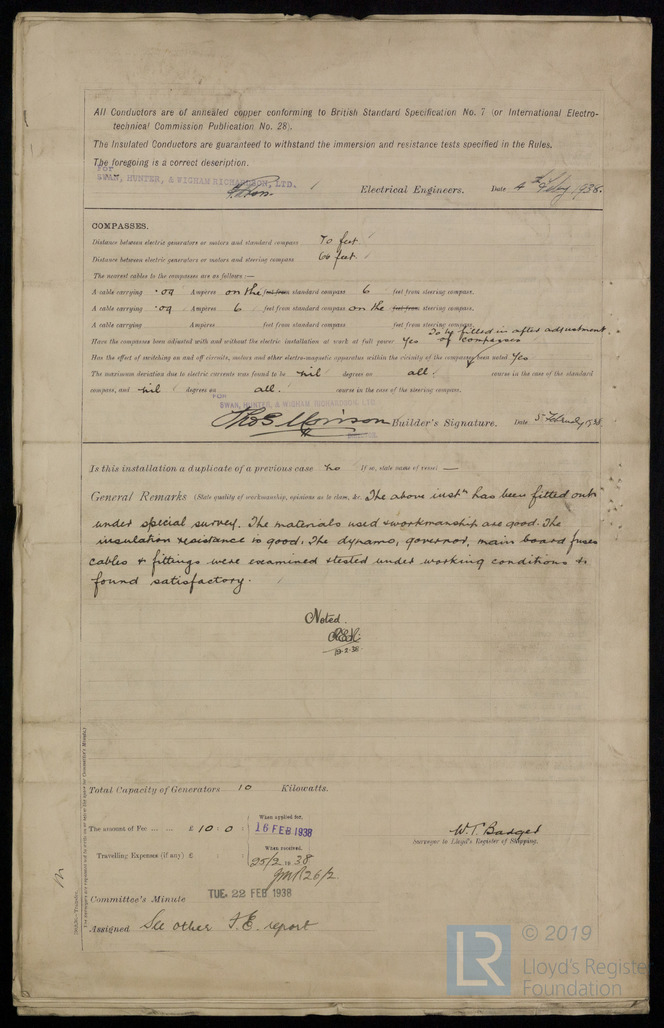 All Conductors are of annealed copper conforming to British Standard Specification No. 7 (or International Electro-
technical Commission Publication No. 28).
The Insulated Conductors are guaranteed to withstand the immersion and resistance tests specified in the Rules.
The foregoing is a correct description.
FOR
SWAN, HUNTER, & WIGHAM RICHARDSON, LTD.
Electrical Engineers. Date 4th Feby 1938.
COMPASSES.
Distance between electric generators or motors and standard compass 70 feet.
Distance between electric generators or motors and steering compass 66 feet.
The nearest cables to the compasses are as follows :—
A cable carrying .09 Ampères on the feet from standard compass 6 feet from steering compass.
A cable carrying .09 Ampères 6 feet from standard compass on the feet from steering compass.
A cable carrying Ampères feet from standard compass feet from steering compass.
To be filled in after adjustment
of compasses
Have the compasses been adjusted with and without the electric installation at work at full power Yes
Has the effect of switching on and off circuits, motors and other electro-magnetic apparatus within the vicinity of the compasses been noted Yes
The maximum deviation due to electric currents was found to be nil degrees on all. course in the case of the standard
compass, and nil degrees on all. course in the case of the steering compass.
FOR
SWAN, HUNTER, & WIGHAM RICHARDSON, LTD.
Thos Morison Builder's Signature. Date 5 February 1938
Is this installation a duplicate of a previous case no If so, state name of vessel —
General Remarks (State quality of workmanship, opinions as to class, &c. The above instn has been fitted out
under special survey. The materials used & workmanship are good. The
insulation resistance is good. The dynamo, governor, main board fuses
cables & fittings were examined & tested under working conditions &
found satisfactory.
Noted.
19.2.38.
Total Capacity of Generators 10 Kilowatts.
The amount of Fee ... ... £ 10 : 0 :
When applied for,
16 FEB 1938
Travelling Expenses (if any) £
When received,
25/2 19 38
26/2
W.T. Badger
Surveyor to Lloyd's Register of Shipping.
Committee's Minute TUE. 22 FEB 1938
Assigned See other F.E. report
LR
© 2019
Lloyd's Register
Foundation